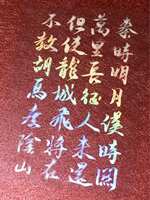 秦時明月漢時關
萬里長征人未還
但使龍城飛將在
不教胡馬度陰山